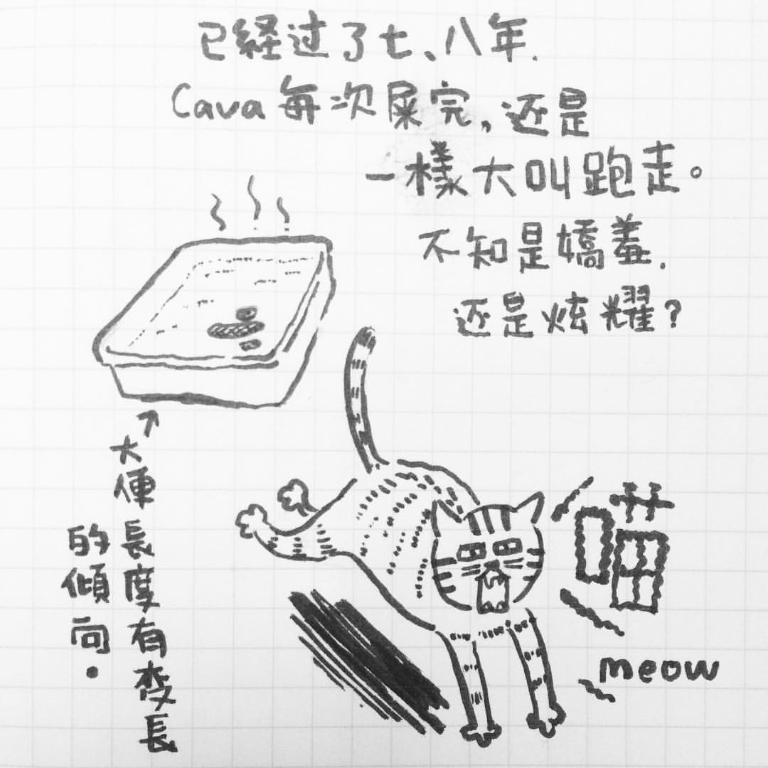 已経过了七、八年.
Cava 每次屎完,还是
一樣大叫跑走。
不知是嬌羞,
还是炫耀?
大便長度有变長
的傾向.
喵
meow